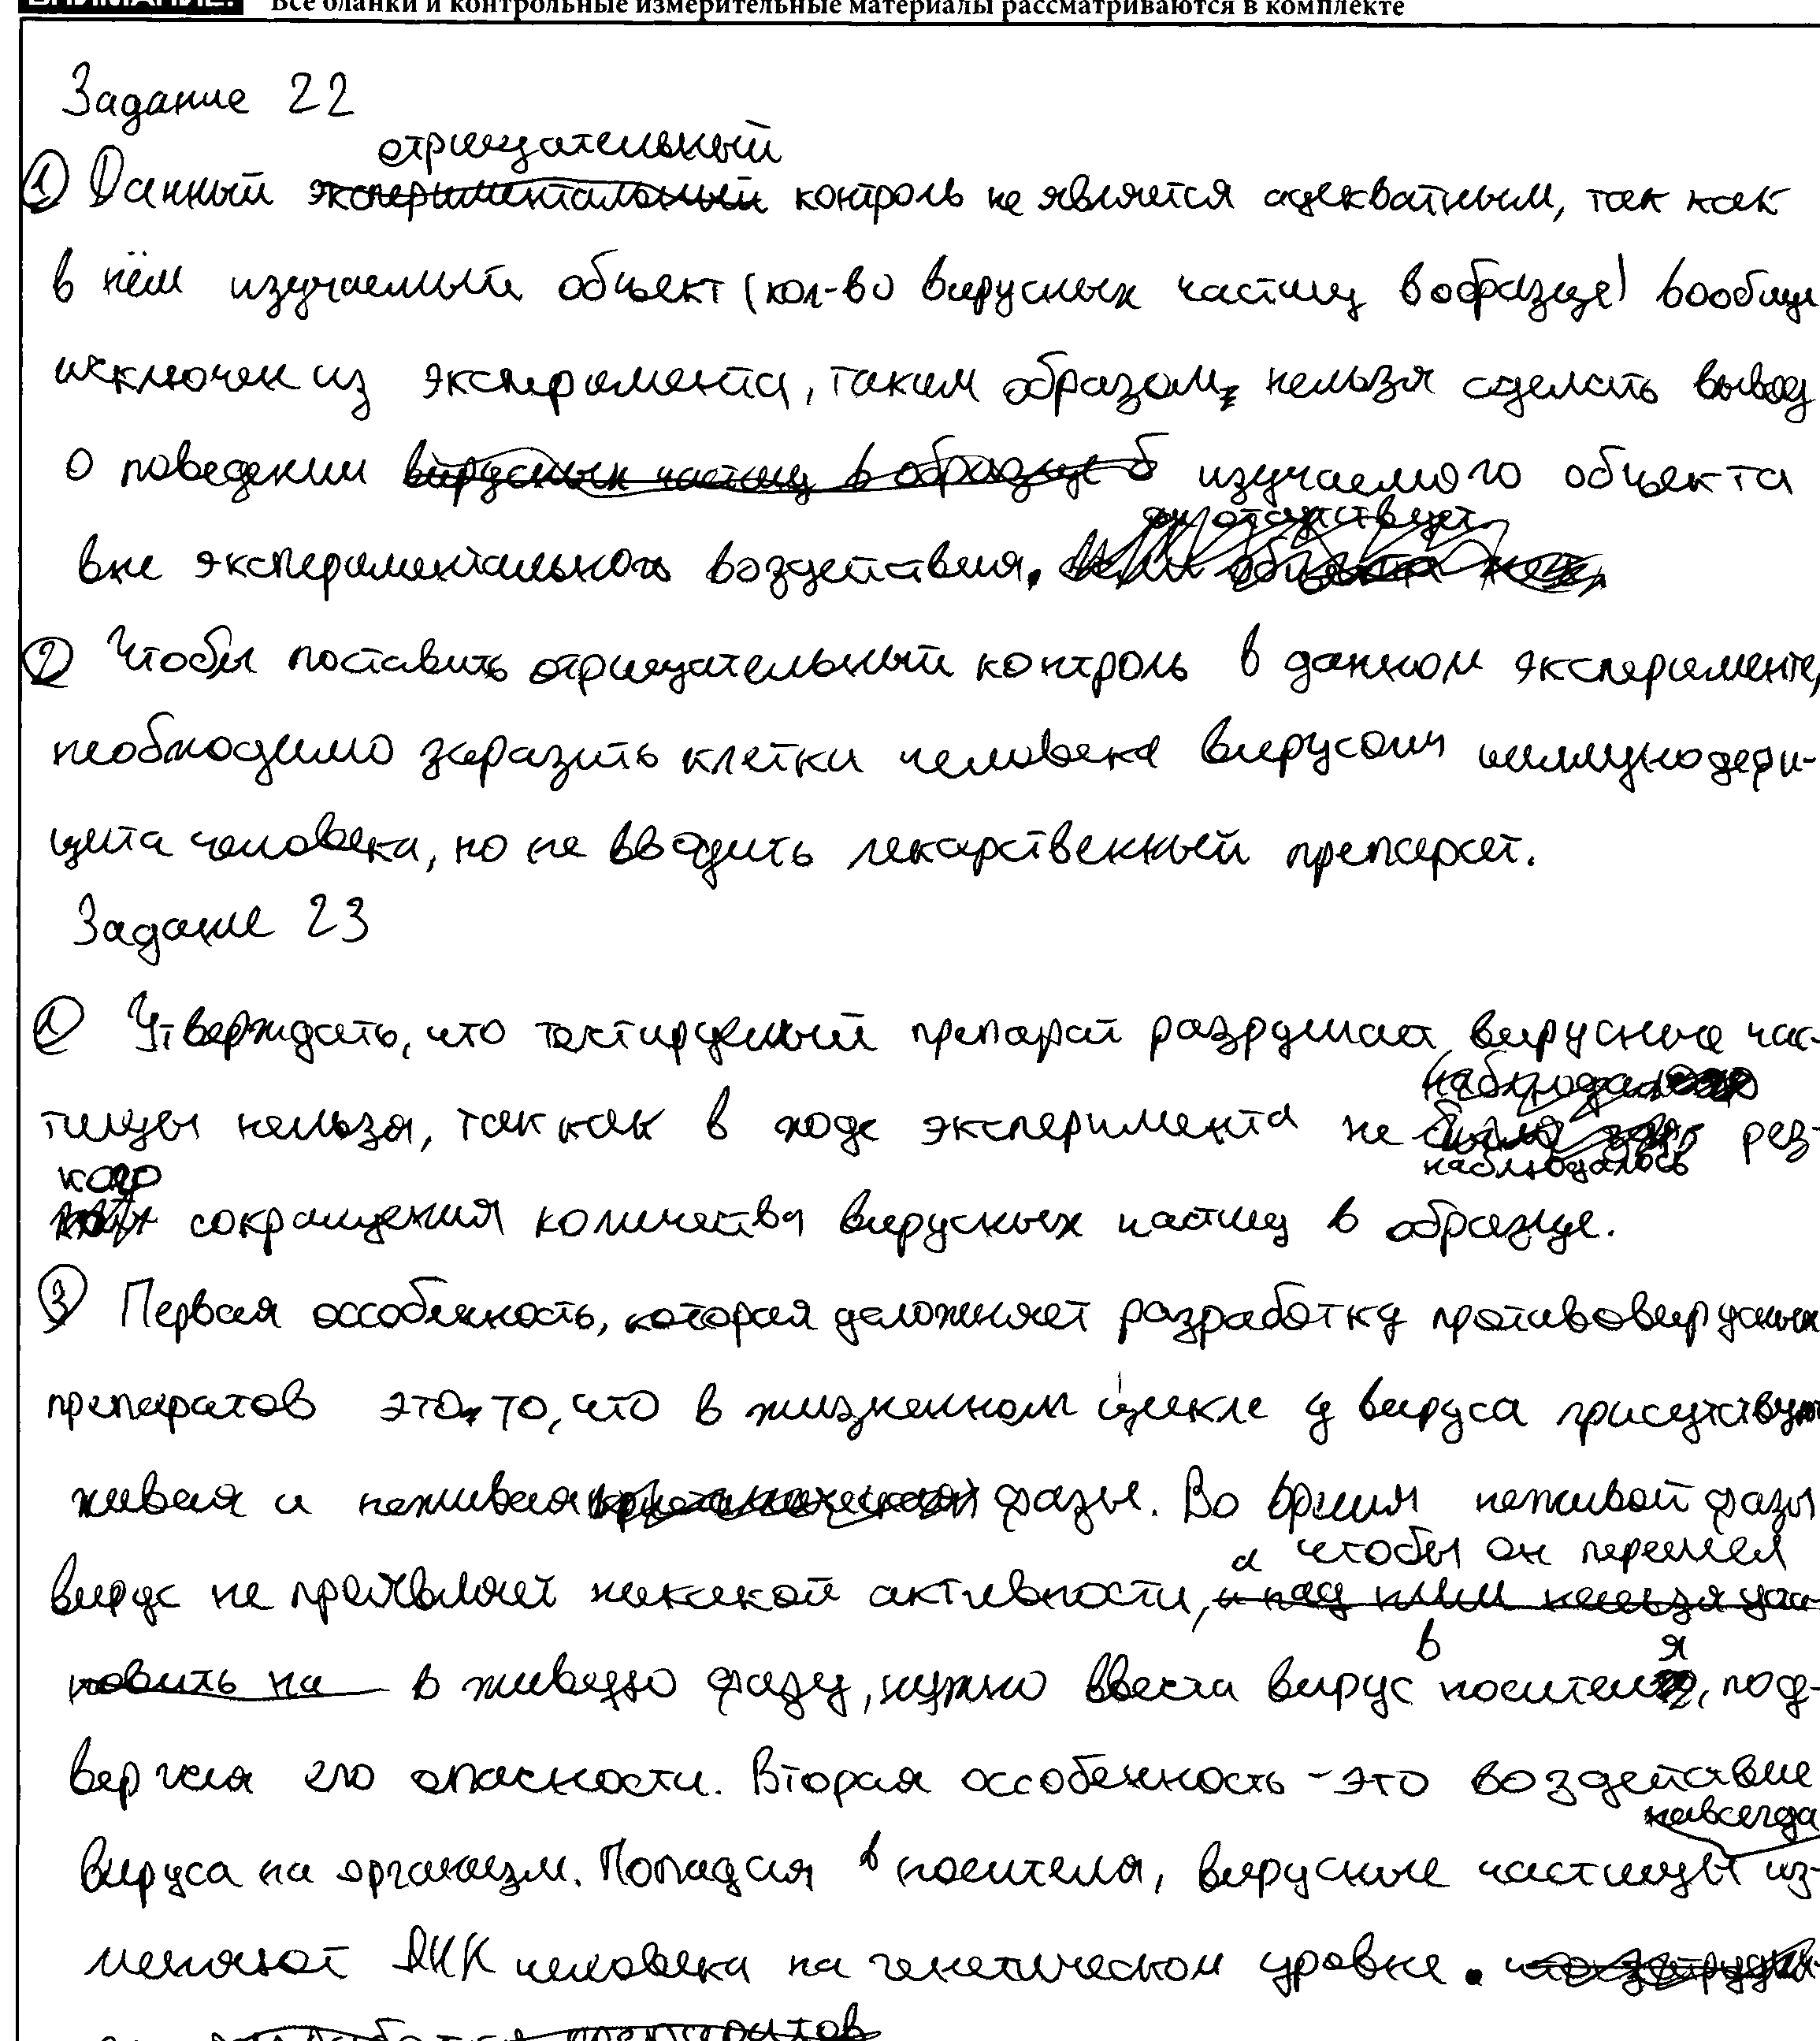 ВНИМАНИЕ! Все бланки и контрольные измерительные материалы рассматриваются в комплекте
Задание 22
отрицательный
① Данный экспериментальный контроль не является адекватным, так как
в нём изучаемый объект (кол-во вирусных частиц в образце) вообще
исключен из эксперимента, таким образом, нельзя сделать вывод
о поведении вирусных частиц в образце б изучаемого объекта
он отсутствует
вне экспериментального воздействия.
② Чтобы поставить отрицательный контроль в данном эксперименте,
необходимо заразить клетки человека вирусом иммунодефи-
цита человека, но не вводить лекарственный препарат.
Задание 23
① Утверждать, что тестируемый препарат разрушает вирусные час-
тицы нельзя, так как в ходе эксперимента не наблюдалось рез-
кого
сокращения количества вирусных частиц в образце.
③ Первая оссобенность, которая усложняет разработку противовирусных
препаратов это то, что в жизненном цикле у вируса присутствуют
живая и неживая фазы. Во время неживой фазы
а чтобы он перешел
вирус не проявляет никакой активности, и над ним нельзя уста-
новить на в живую фазу, нужно ввести вирус в носителя, под-
вергая его опасности. Вторая оссобенность - это воздействие
навсегда
вируса на организм. Попадая в носителя, вирусные частицы из-
меняют ДНК человека на генетическом уровне.
препаратов